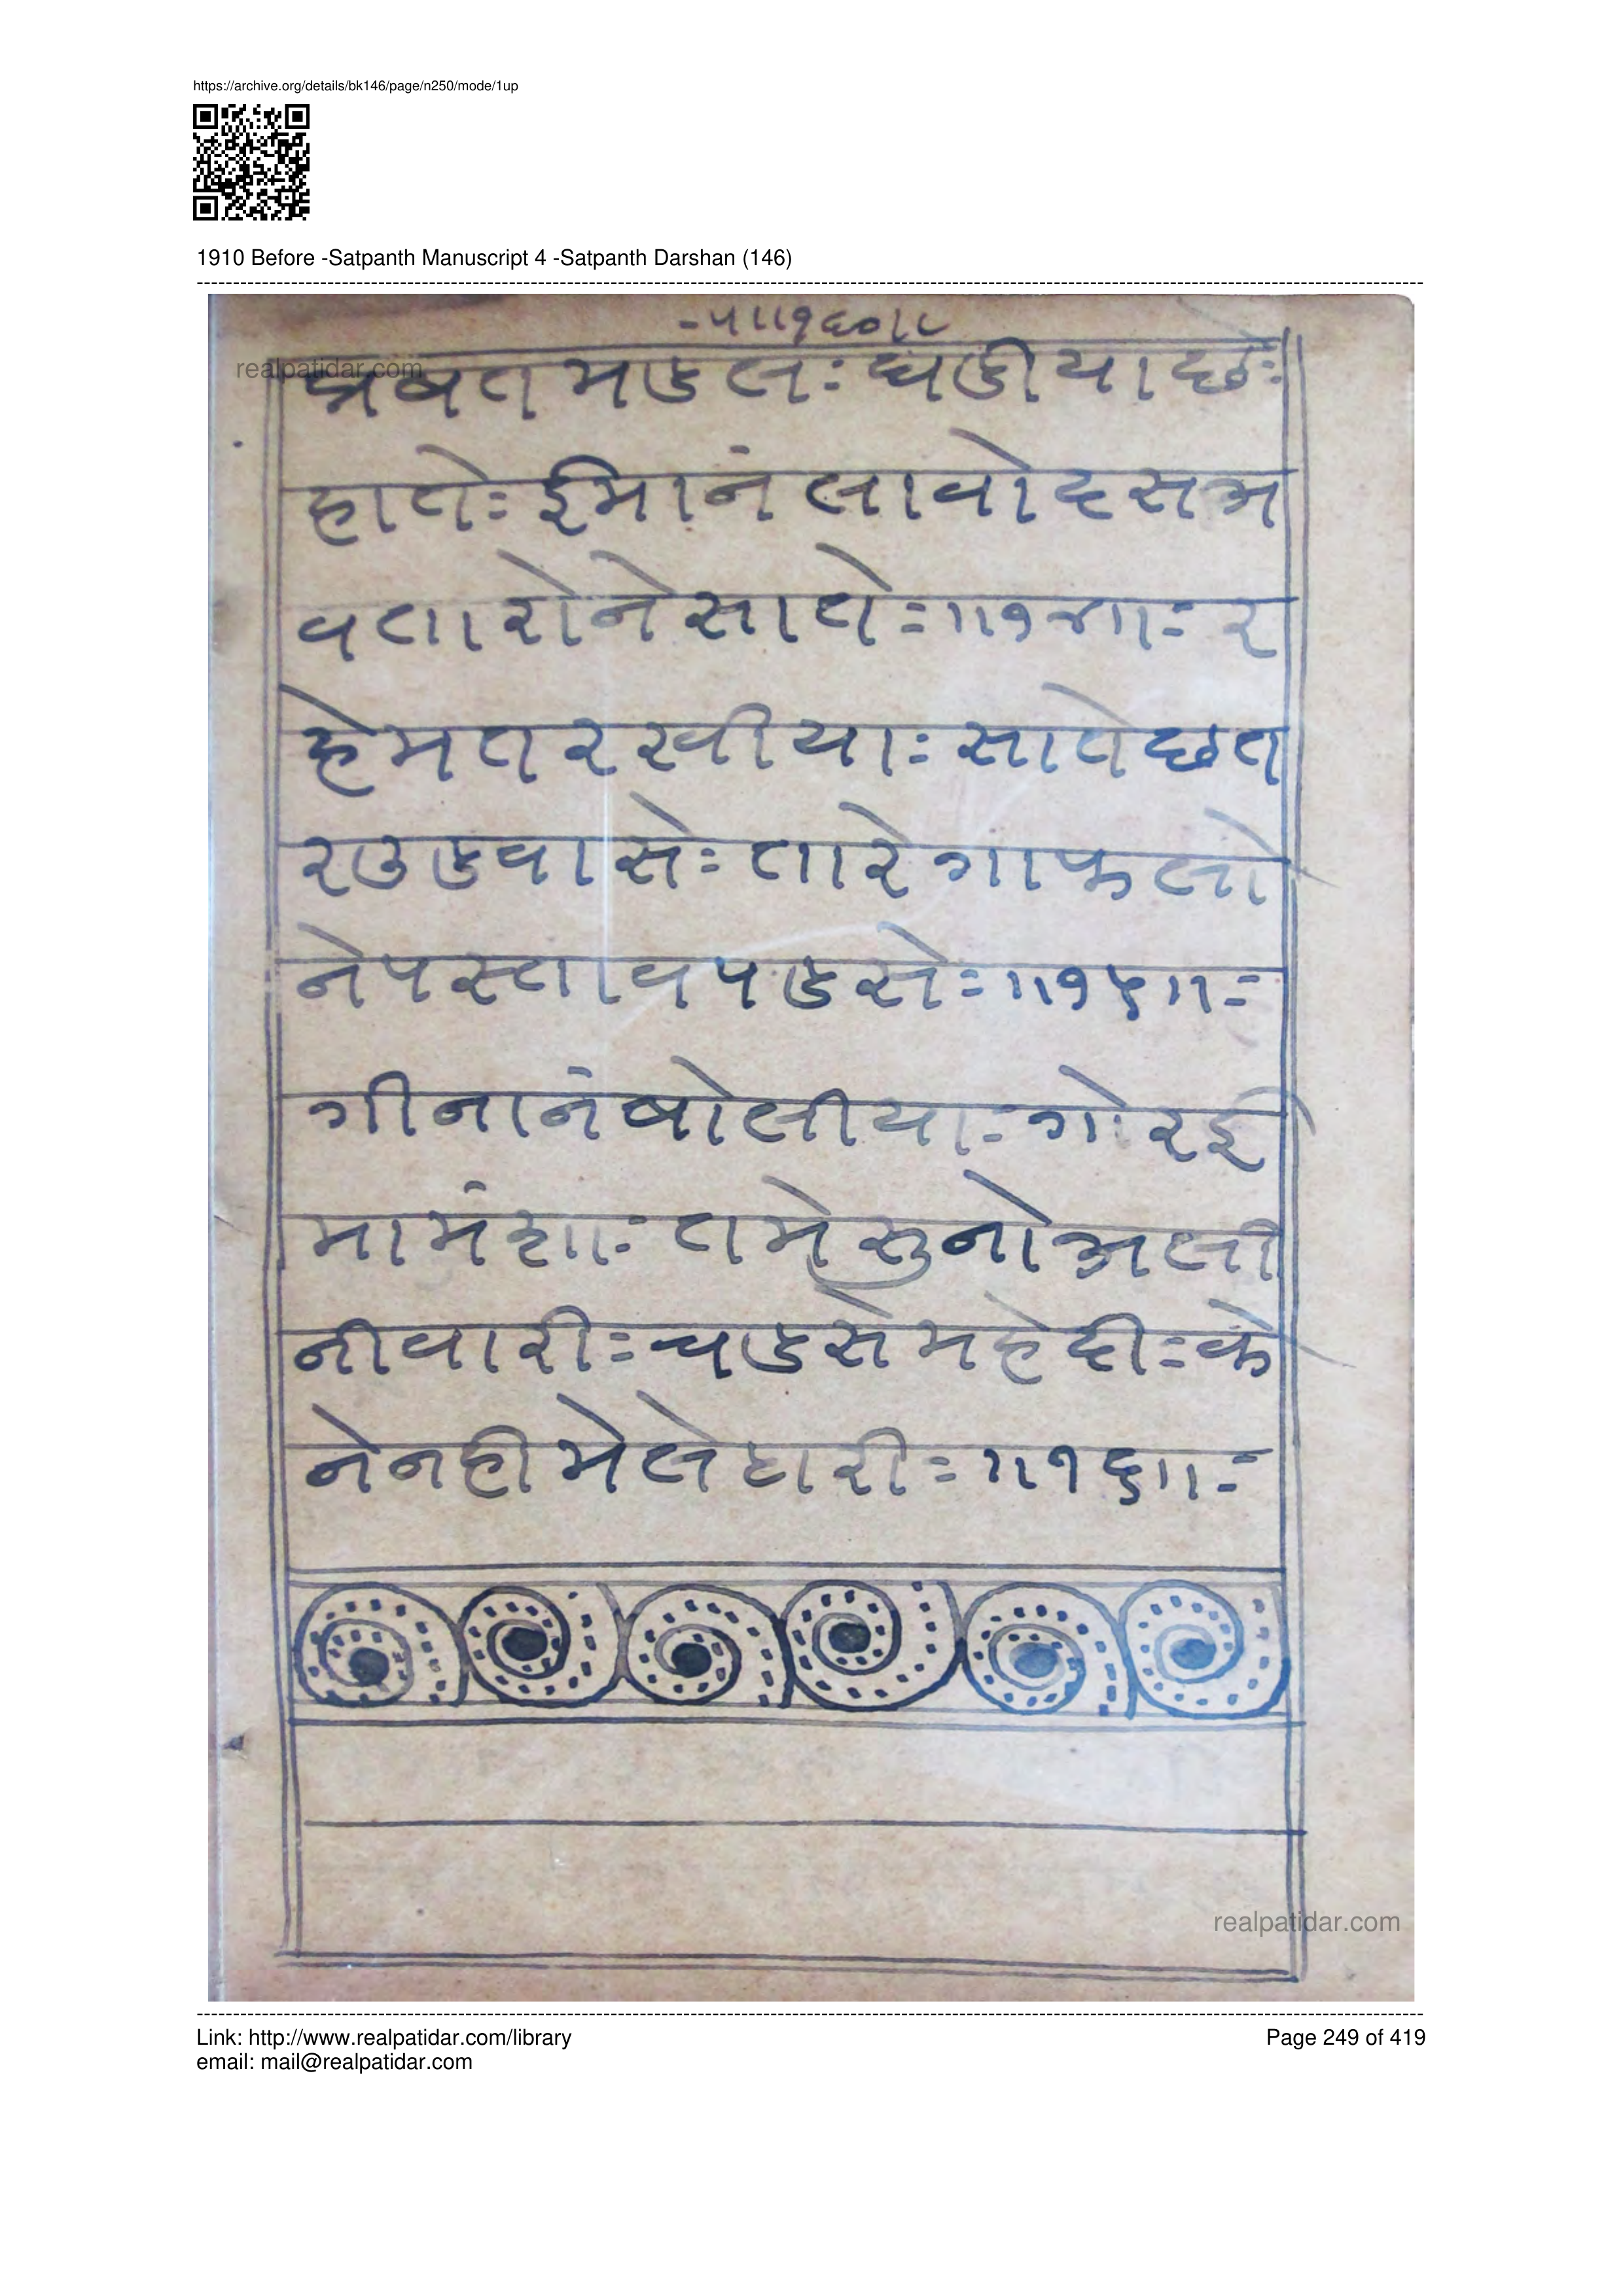 https://archive.org/details/bk146/page/n250/mode/1up
1910 Before -Satpanth Manuscript 4 -Satpanth Darshan (146)
-५॥१६०॥
realpatidar.com
प्रबत मडल: घडीया छे:
हाते: ईमानं लावो दस अ
वतारोने साते=॥१४॥= र
हेमत रखीया: साते छत
र उडवासे: तारे गाफलो
ने पस्ताव पडसे=॥१५॥=
गीनानं बोलीया= गोर ई
मामंशा: तमे सुनो अली
नी वारी= चडसे महेदी= के
ने नही मेले हारी=॥१६॥=
realpatidar.com
Link: http://www.realpatidar.com/library
Page 249 of 419
email: mail@realpatidar.com